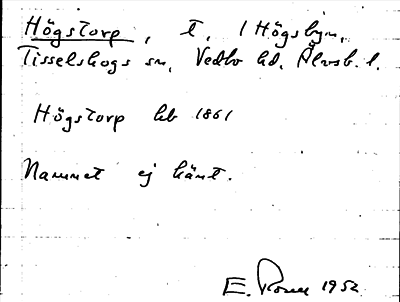 Högstorp, t. / Högsbyn,
Tisselskogs sn, Vedbo hd, Älvsb. l.
Högstorp hb 1861
Namnet ej känt.
E. 1952